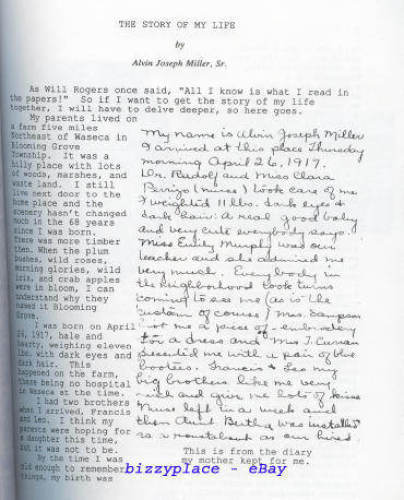 THE STORY OF MY LIFE
by
Alvin Joseph Miller, Sr.
As Will Rogers once said, "All I know is what I read in
the papers!" So if I want to get the story of my life
together, I will have to delve deeper, so here goes.
My parents lived on
a farm five miles
Northeast of Waseca in
Blooming Grove
Township. It was a
hilly place with lots
of woods, marshes, and
waste land. I still
live next door to the
home place and the
scenery hasn't changed
much in the 68 years
since I was born.
There was more timber
then. When the plum
bushes, wild roses,
morning glories, wild
iris, and crab apples
were in bloom, I can
understand why they
named it Blooming
Grove.
I was born on April
26, 1917, hale and
hearty, weighing eleven
lbs. with dark eyes and
dark hair. This
happened on the farm,
there being no hospital
in Waseca at the time.
I had two brothers
when I arrived, Francis
and Leo. I think my
parents were hoping for
a daughter this time,
but it was not to be.
By the time I was
old enough to remember
things, my birth was
My name is Alvin Joseph Miller
I arrived at this place Thursday
morning April 26, 1917.
Dr. Rudolf and Miss Clara
Perizo (nurse) took care of me
I weighed 11 lbs. dark eyes &
dark hair. A real good baby
and very cute everybody says.
Miss Emily Murphy was our
teacher and she admired me
very much. Everybody in
the neighborhood took turns
coming to see me (as is the
custom of course) Mrs. Sampson
got me a piece of embroidery
for a dress and Mrs T. Curran
presented me with a pair of blue
bootees. Francis & Leo my
big brothers like me very
much and give me lots of kisses
Nurse left in a week and
then Aunt Bertha was installed
as our hired
This is from the diary
my mother kept for me.
bizzyplace - eBay